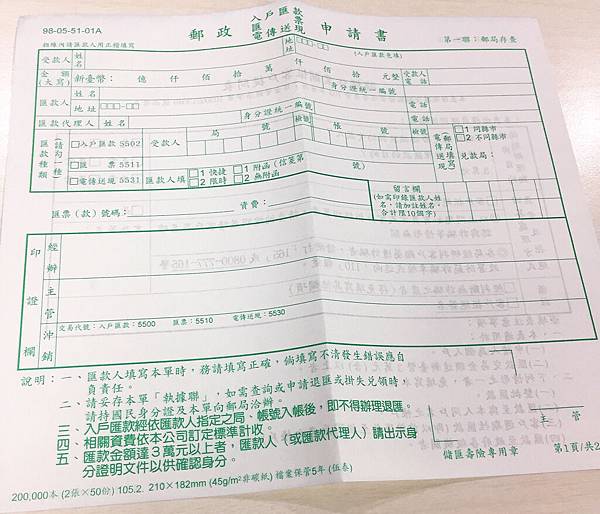 98-05-51-01A
郵政 入戶匯款 匯票 電傳送現 申請書
粗線內請匯款人用正楷填寫
第一聯：郵局存查
受款人 姓名 地址 □□□-□□ (入戶匯款免填)
金額(大寫) 新臺幣： 億 仟 佰 拾 萬 仟 佰 拾 元整 受款人電話
匯款人 姓名 身分證統一編號
地址 □□□-□□ 電話
匯款代理人 姓名 身分證統一編號 電話
匯款種類 (請勾一種) □入戶匯款 5502 受款人 局號 檢號 帳號 檢號 電傳送現 (郵局填寫) □1 同縣市 □2 不同縣市
□匯票 5511 兌款局：
□電傳送現 5531 匯款人填 □1 快捷 □2 限時 □1 附函(信箋第 號) □2 無附函
匯票(款)號碼：□ 資費： 留言欄
(如需印錄匯款人姓名，請加註姓名，合計限10個字)
印證欄 經辦
主管
交易代號：入戶匯款：5500 匯票：5510 電傳送現：5530
沖銷
說明：一、匯款人填寫本單時，務請填寫正確，倘填寫不清發生錯誤應自
負責任。
二、請妥存本單「執據聯」，如需查詢或申請退匯或掛失兌領時，
請持國民身分證及本單向郵局洽辦。
三、入戶匯款經依匯款人指定之局、帳號入帳後，即不得辦理退匯。
四、相關資費依本公司訂定標準計收。
五、匯款金額達3萬元以上者，匯款人（或匯款代理人）請出示身
分證明文件以供確認身分。
主管
儲匯壽險專用章
200,000本 (2張×50份) 105.2. 210×182mm (45g/m²非碳紙) 檔案保管5年 (伍泰)
第1頁/共2